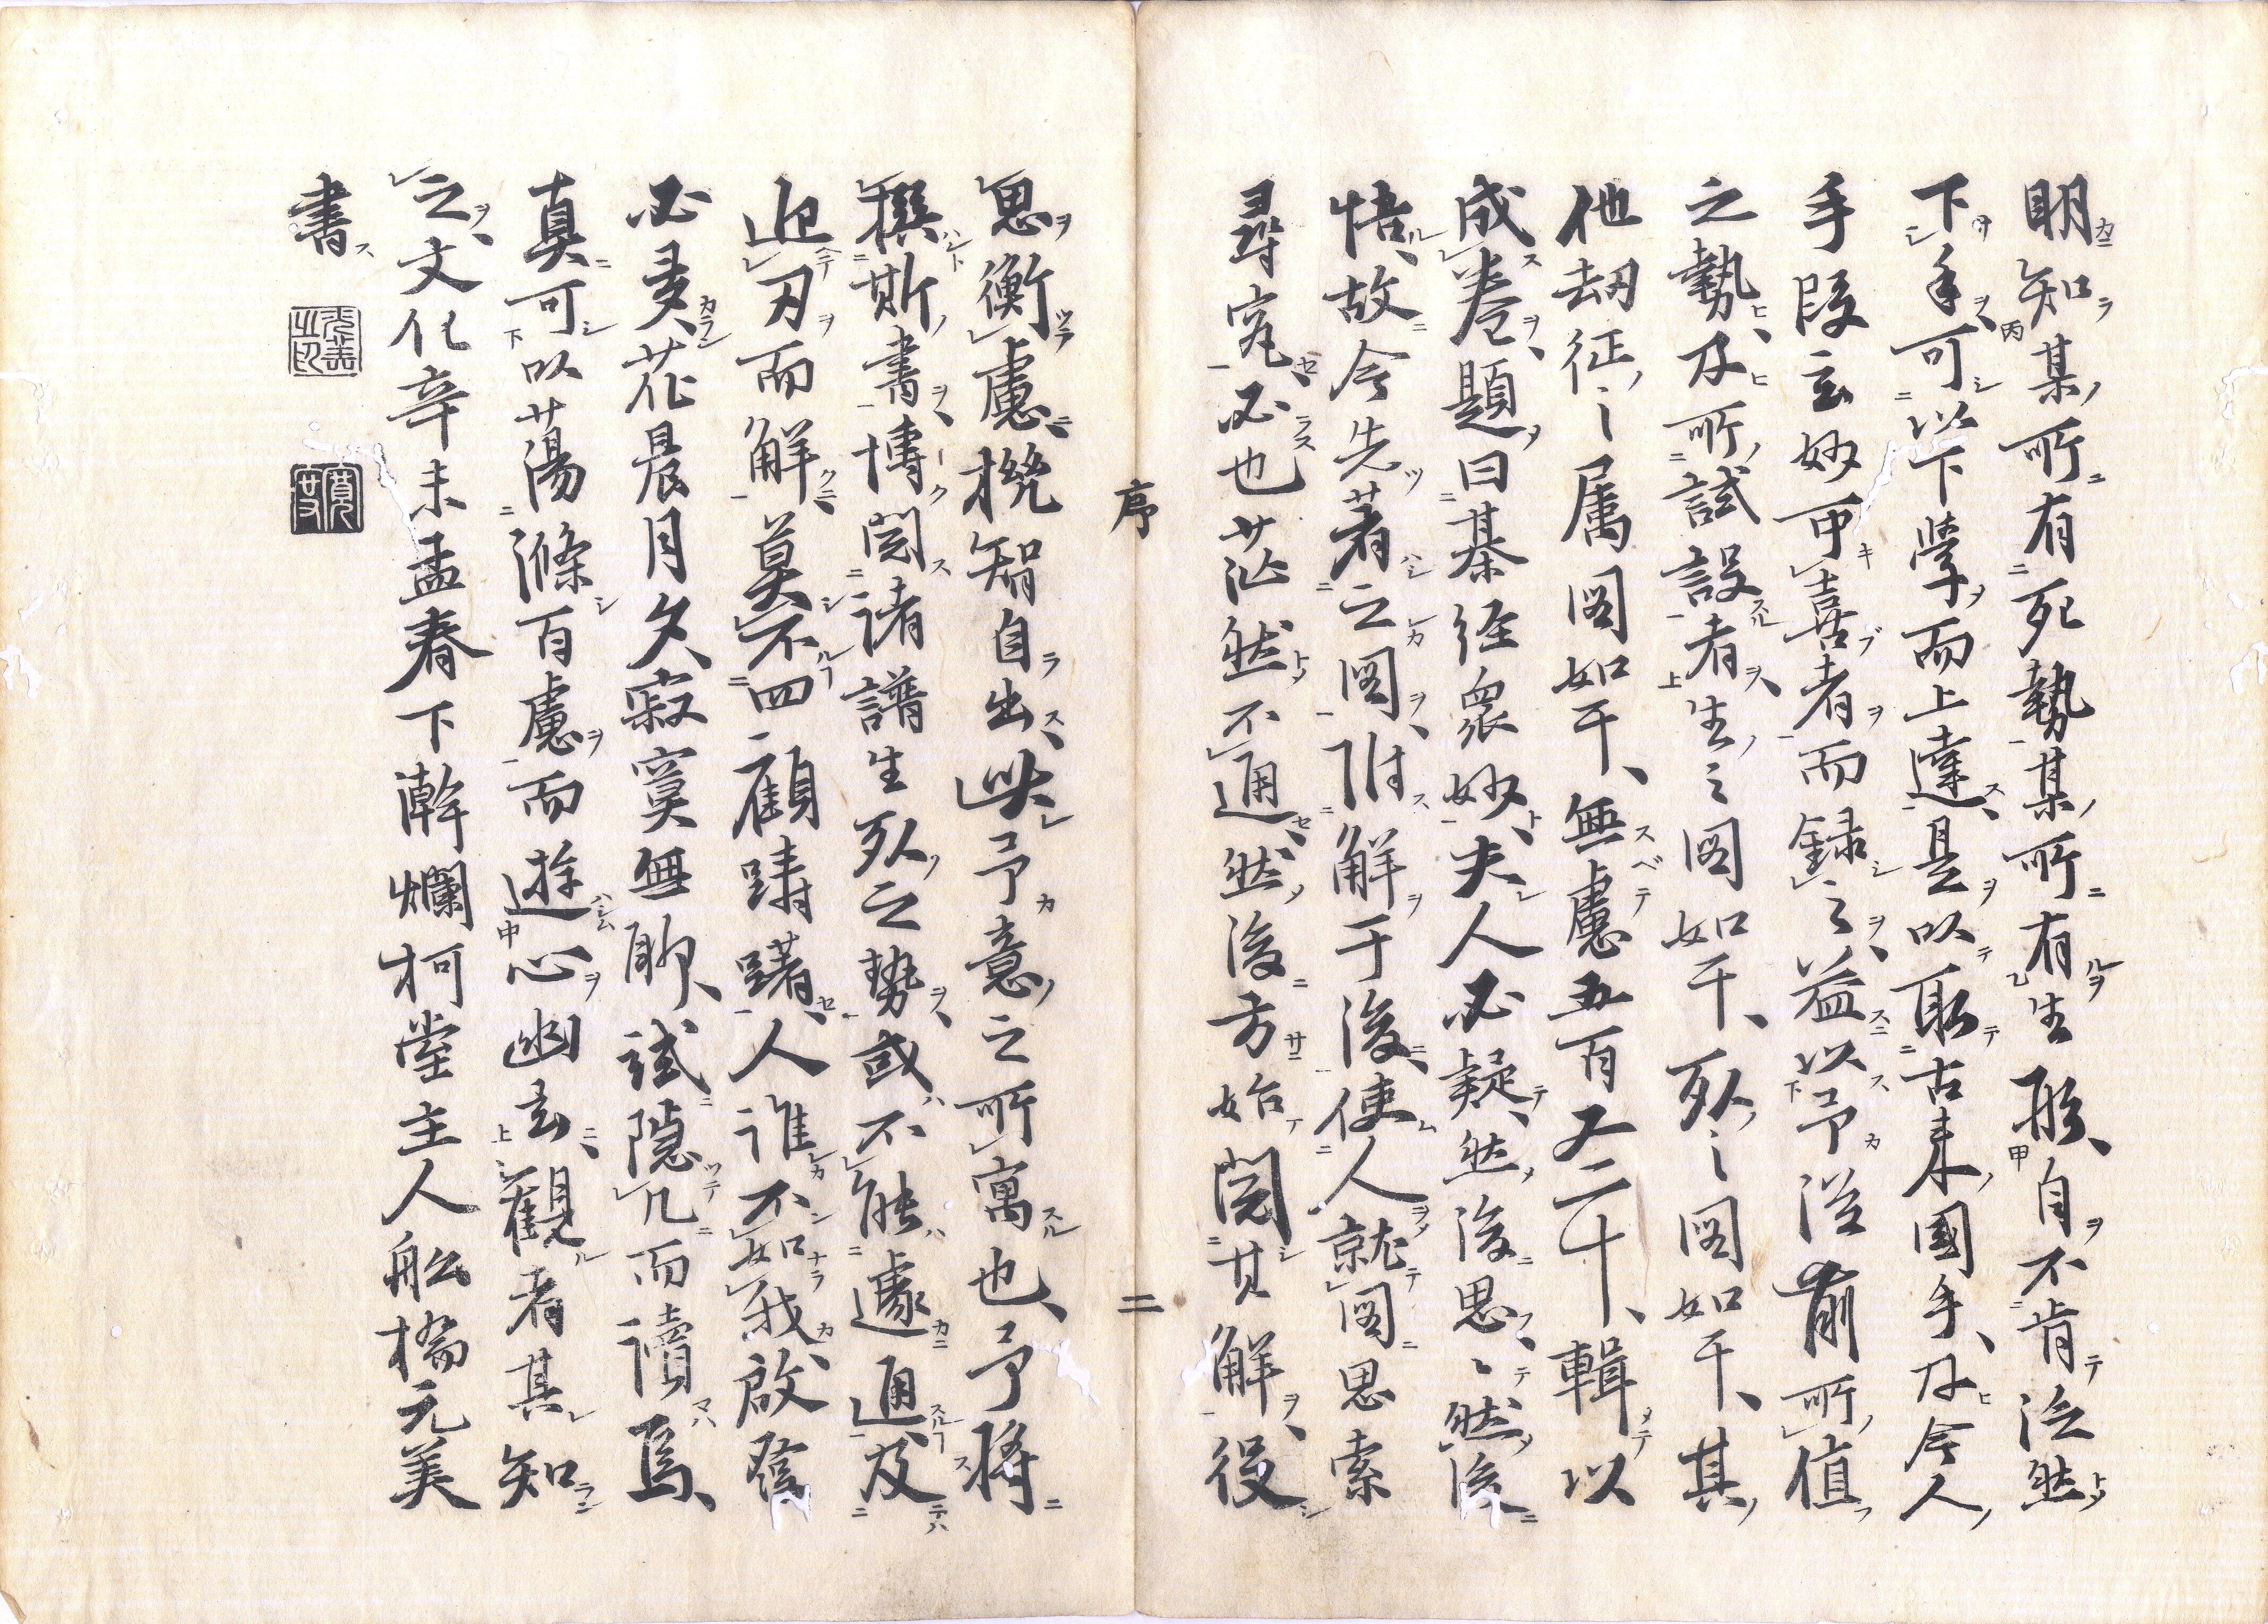 明知某所有死勢某所有生形自不肯泛然
下手可以下學而上達是以取古来國手及今人
手段玄妙可喜者而録之益以予從前所值
之勢及所試設者生之図如干死之図如干其
他劫征之属図如干無慮五百又二十輯以
成巻題曰棊経衆妙夫人必疑然後思思然後
悟故今先著之図附解于後使人就図思索
尋究必也茫然不通然後方始閲其解役
序 二
思衡慮機智自出此予意之所寓也予將
撰斯書博閲諸譜生死之势或不能遽通及
迎刃而解莫不四顧躊躇人誰不如我啟蔭
必多花晨月夕寂寞無聊試隠几而讀焉
真可以蕩滌百慮而遊心幽玄觀者其知
之文化辛未孟春下澣爛柯堂主人舩橋元美
書
元美之印